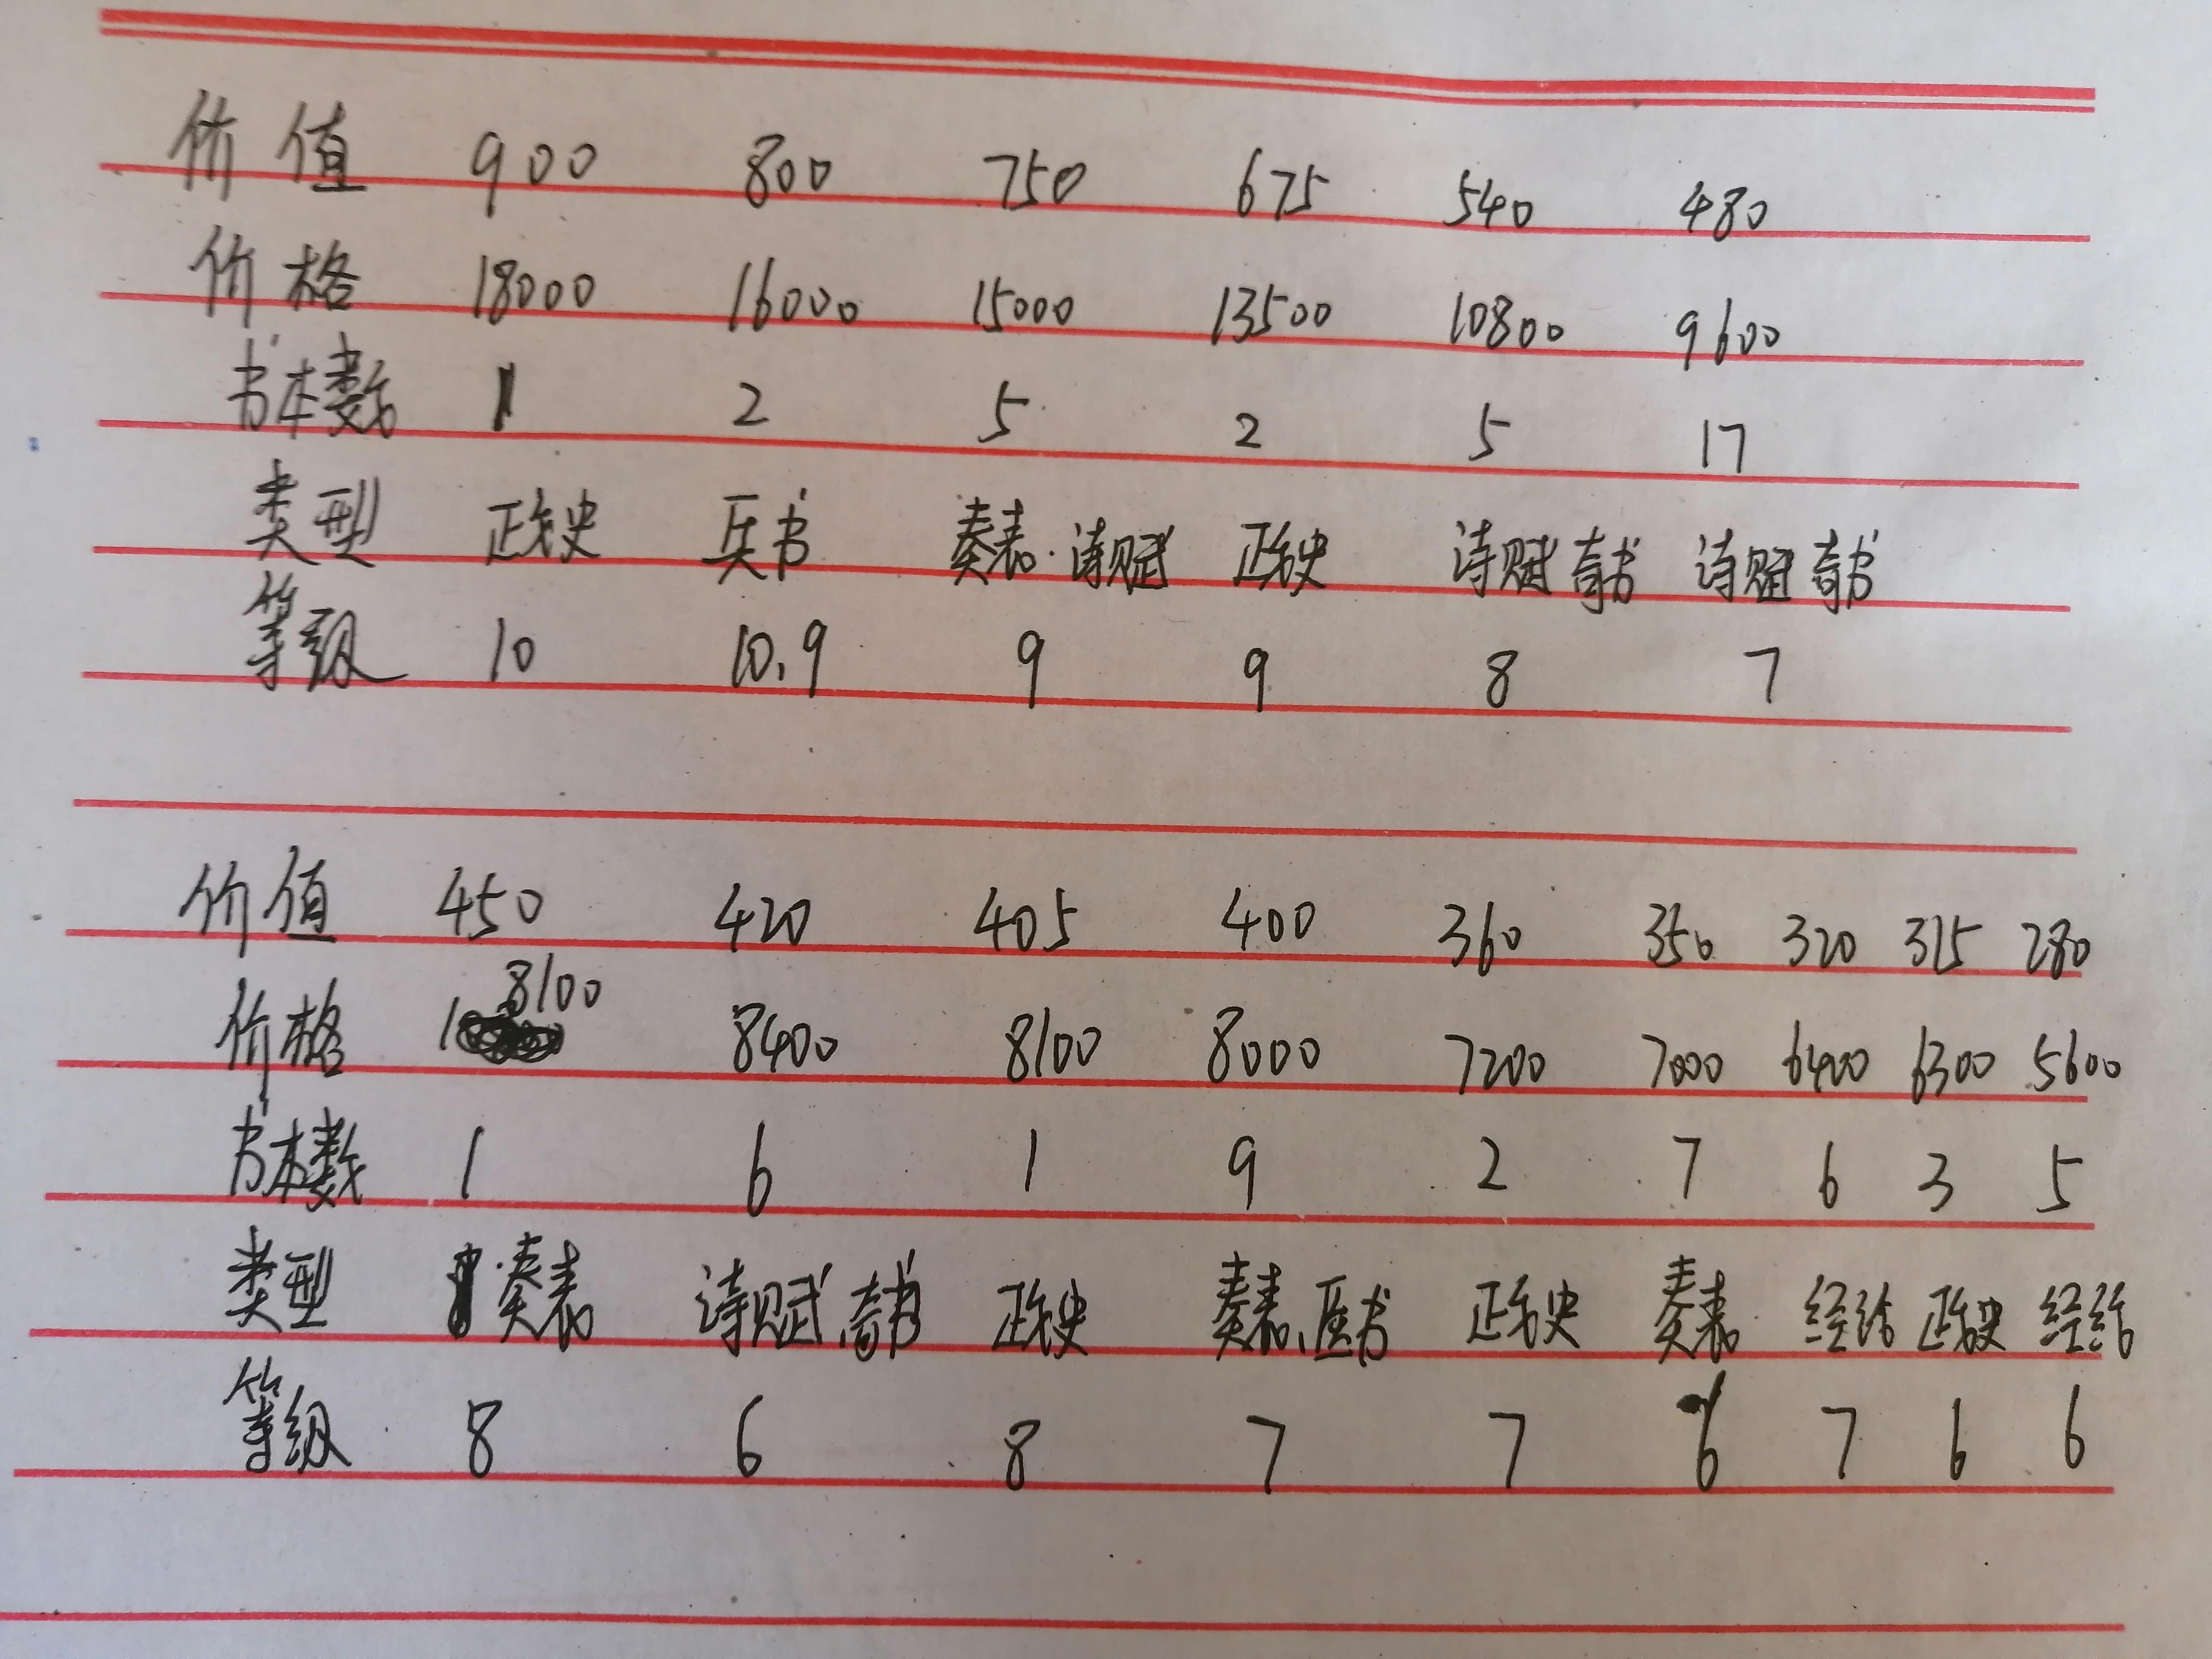 价值 900 800 750 675 540 480
价格 18000 16000 15000 13500 10800 9600
书本数 1 2 5 2 5 17
类型 正史 兵书 奏表·诗赋 正史 诗赋 奇书 诗赋 奇书
等级 10 10.9 9 9 8 7
价值 450 420 405 400 360 350 320 315 280
价格 8100 8400 8100 8000 7200 7000 6400 6300 5600
书本数 1 6 1 9 2 7 6 3 5
类型 奏表 诗赋、奇书 正史 奏表、医书 正史 奏表 正史
等级 8 6 8 7 7 6 7 6 6